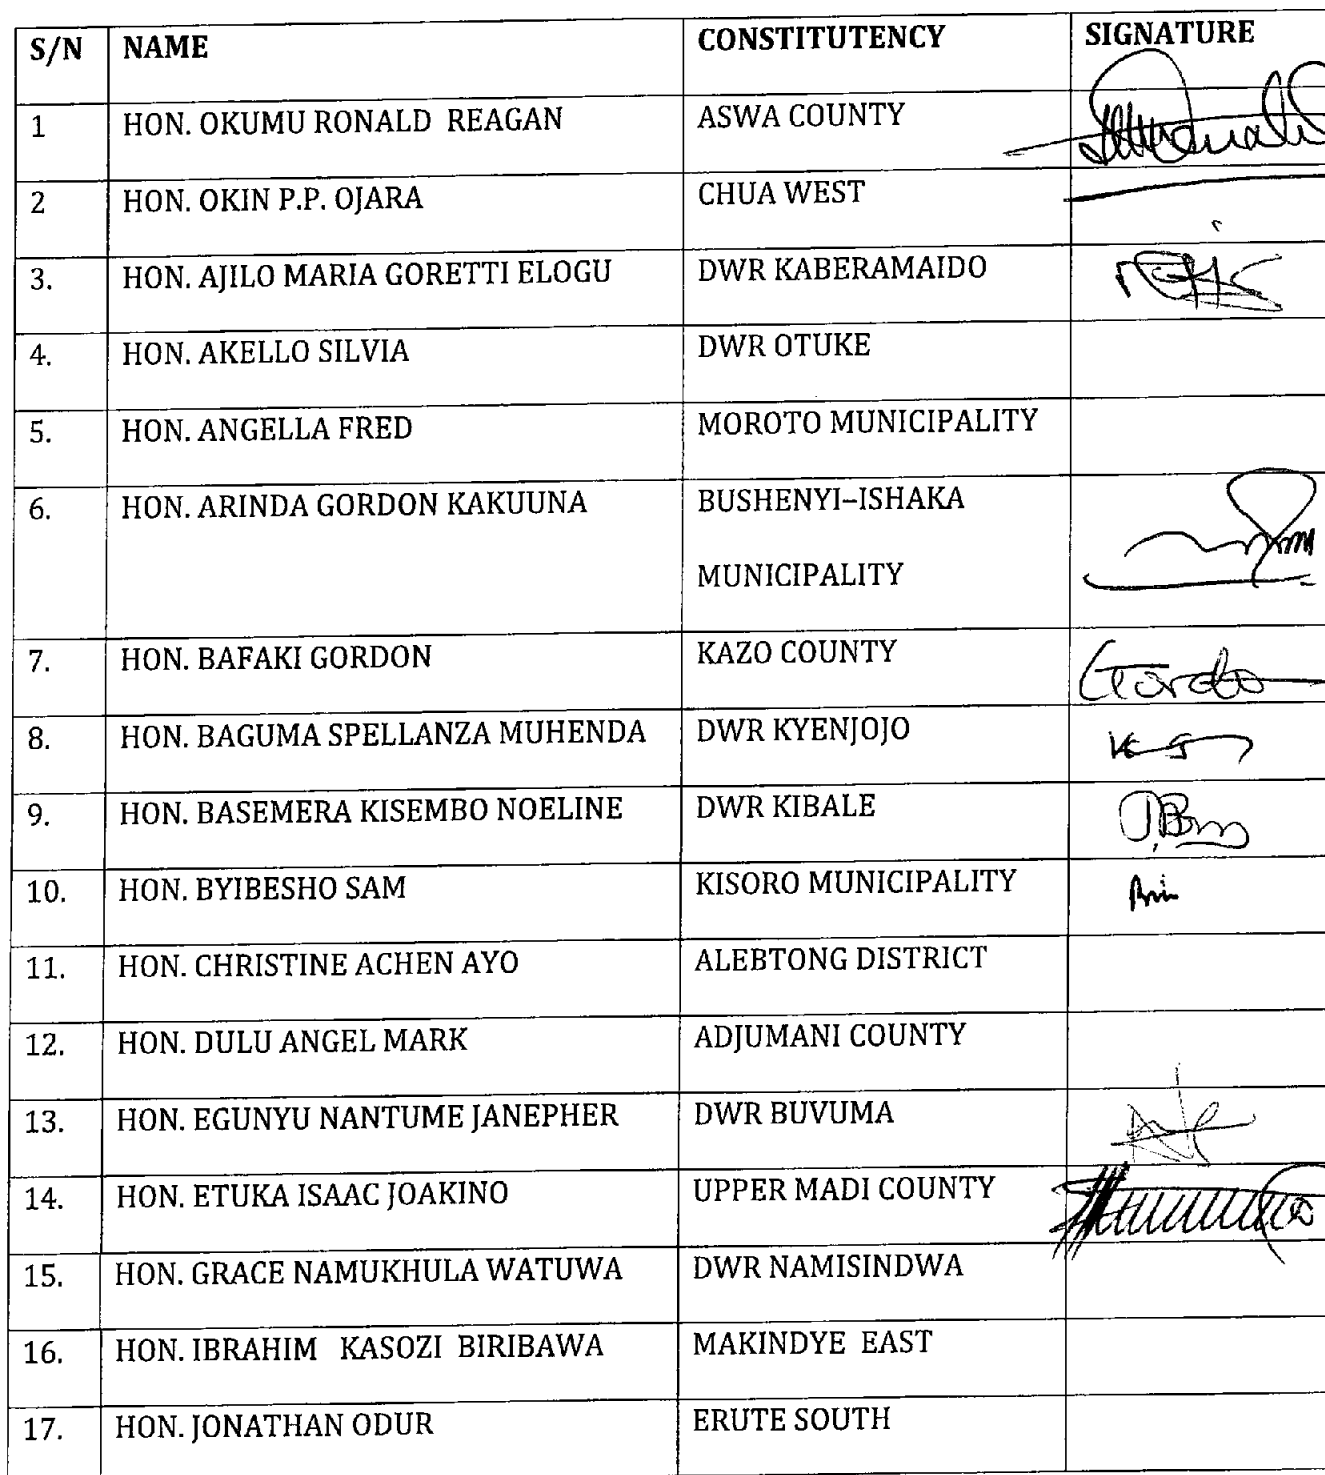 S/N NAME CONSTITUTENCY SIGNATURE
1 HON. OKUMU RONALD REAGAN ASWA COUNTY
2 HON. OKIN P.P. OJARA CHUA WEST
3. HON. AJILO MARIA GORETTI ELOGU DWR KABERAMAIDO
4. HON. AKELLO SILVIA DWR OTUKE
5. HON. ANGELLA FRED MOROTO MUNICIPALITY
6. HON. ARINDA GORDON KAKUUNA BUSHENYI–ISHAKA
MUNICIPALITY
7. HON. BAFAKI GORDON KAZO COUNTY
8. HON. BAGUMA SPELLANZA MUHENDA DWR KYENJOJO
9. HON. BASEMERA KISEMBO NOELINE DWR KIBALE
10. HON. BYIBESHO SAM KISORO MUNICIPALITY
11. HON. CHRISTINE ACHEN AYO ALEBTONG DISTRICT
12. HON. DULU ANGEL MARK ADJUMANI COUNTY
13. HON. EGUNYU NANTUME JANEPHER DWR BUVUMA
14. HON. ETUKA ISAAC JOAKINO UPPER MADI COUNTY
15. HON. GRACE NAMUKHULA WATUWA DWR NAMISINDWA
16. HON. IBRAHIM KASOZI BIRIBAWA MAKINDYE EAST
17. HON. JONATHAN ODUR ERUTE SOUTH